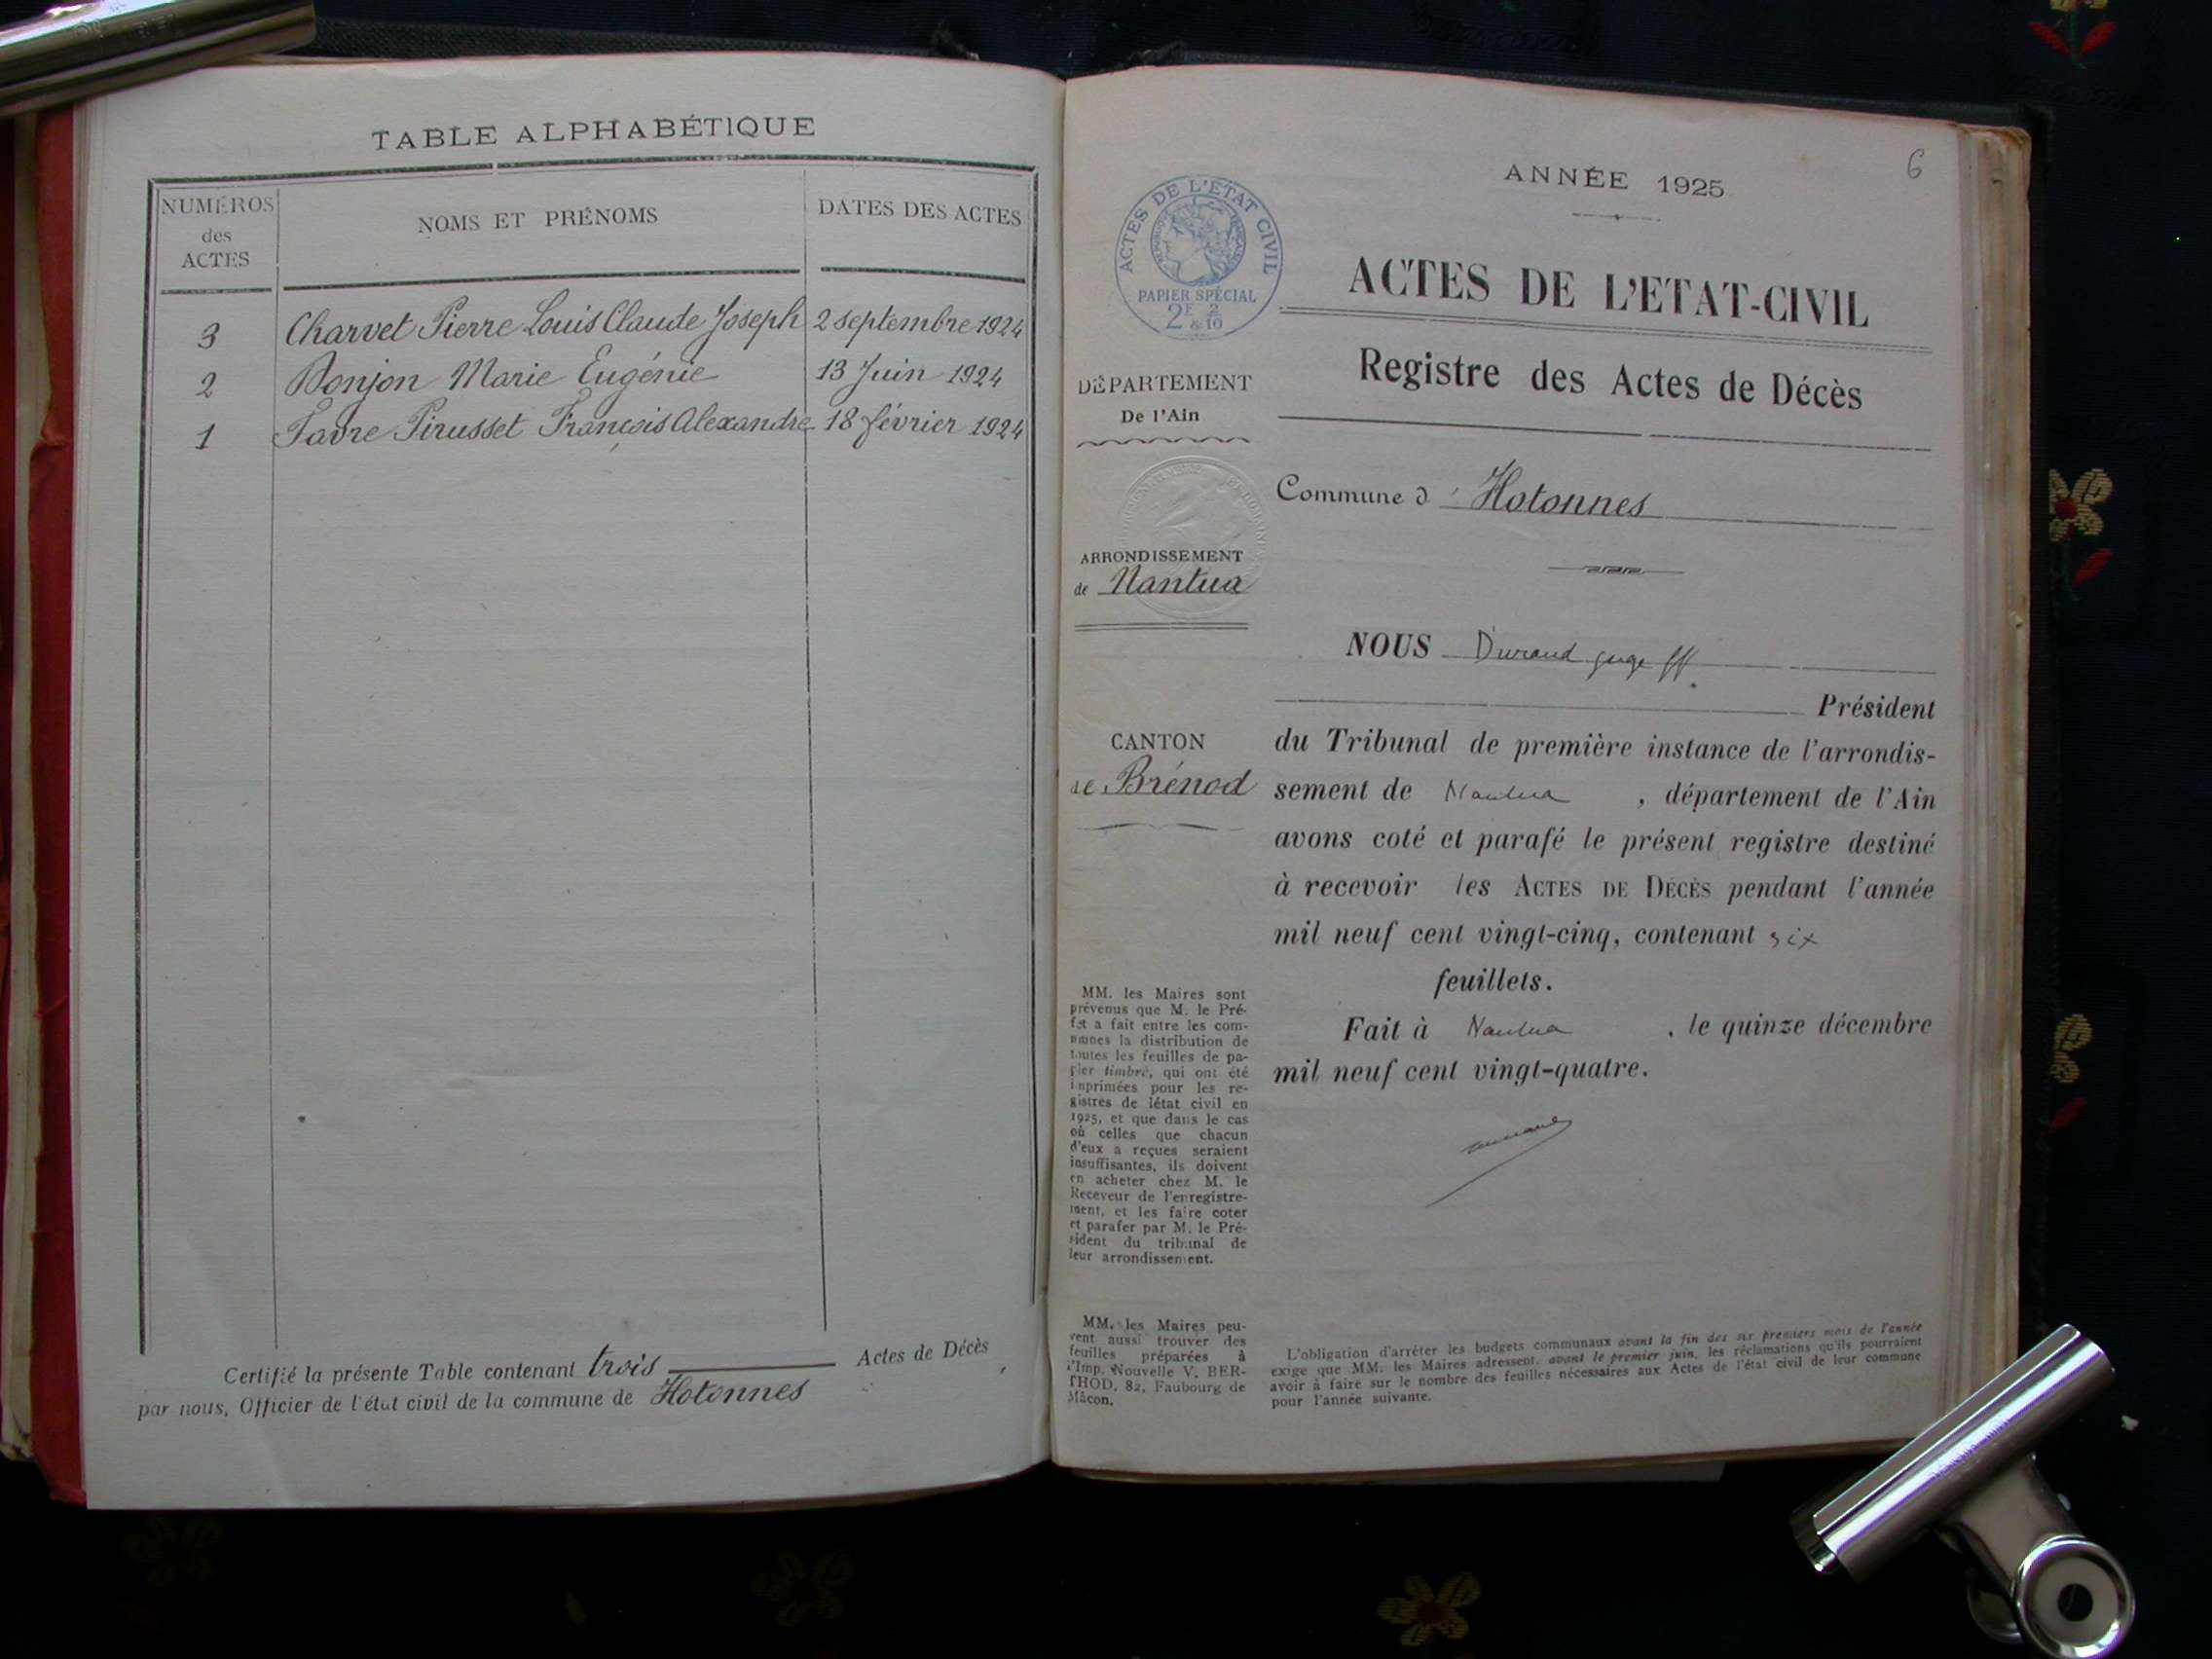 TABLE ALPHABÉTIQUE
NUMÉROS
des
ACTES
NOMS ET PRÉNOMS
DATES DES ACTES
3 Charvet Pierre Louis Claude Joseph 2 septembre 1924
2 Bonjon Marie Eugénie 13 Juin 1924
1 Favre Pirusset François Alexandre 18 février 1924
Certifié la présente Table contenant trois Actes de Décès
par nous, Officier de l'état civil de la commune de Hotonnes
6
ANNÉE 1925
ACTES DE L'ETAT CIVIL
RÉPUBLIQUE FRANÇAISE
PAPIER SPÉCIAL
2F 2/10
ACTES DE L'ETAT-CIVIL
Registre des Actes de Décès
DÉPARTEMENT
De l'Ain
Commune d' Hotonnes
ARRONDISSEMENT
de Nantua
CANTON
de Brénod
NOUS Durand juge ff
Président
du Tribunal de première instance de l'arrondis-
sement de Nantua , département de l'Ain
avons coté et parafé le présent registre destiné
à recevoir les ACTES DE DÉCÈS pendant l'année
mil neuf cent vingt-cinq, contenant six
feuillets.
Fait à Nantua , le quinze décembre
mil neuf cent vingt-quatre.
MM. les Maires sont
prévenus que M. le Pré-
fet a fait entre les com-
munes la distribution de
toutes les feuilles de pa-
pier timbré, qui ont été
imprimées pour les re-
gistres de létat civil en
1925, et que dans le cas
où celles que chacun
d'eux a reçues seraient
insuffisantes, ils doivent
en acheter chez M. le
Receveur de l'enregistre-
ment, et les faire coter
et parafer par M. le Pré-
sident du tribunal de
leur arrondissement.
MM. les Maires peu-
vent aussi trouver des
feuilles préparées à
l'Imp. Nouvelle V. BER-
THOD, 82, Faubourg de
Mâcon.
L'obligation d'arrêter les budgets communaux avant la fin des six premiers mois de l'année
exige que MM. les Maires adressent, avant le premier juin, les réclamations qu'ils pourraient
avoir à faire sur le nombre des feuilles nécessaires aux Actes de l'état civil de leur commune
pour l'année suivante.